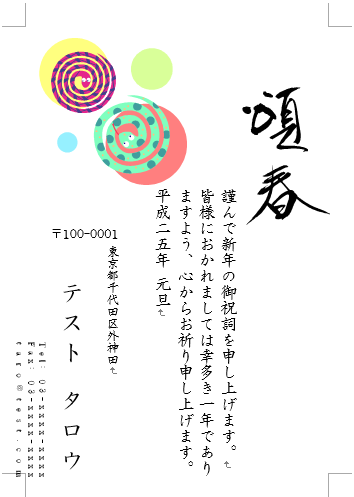 頌春
謹んで新年の御祝詞を申し上げます。
皆様におかれましては幸多き一年であり
ますよう、心からお祈り申し上げます。
平成二五年 元旦
〒100-0001
東京都千代田区外神田
テスト タロウ
Tel: 03-xxxx-xxxx
Fax: 03-xxxx-xxxx
taro@test.com